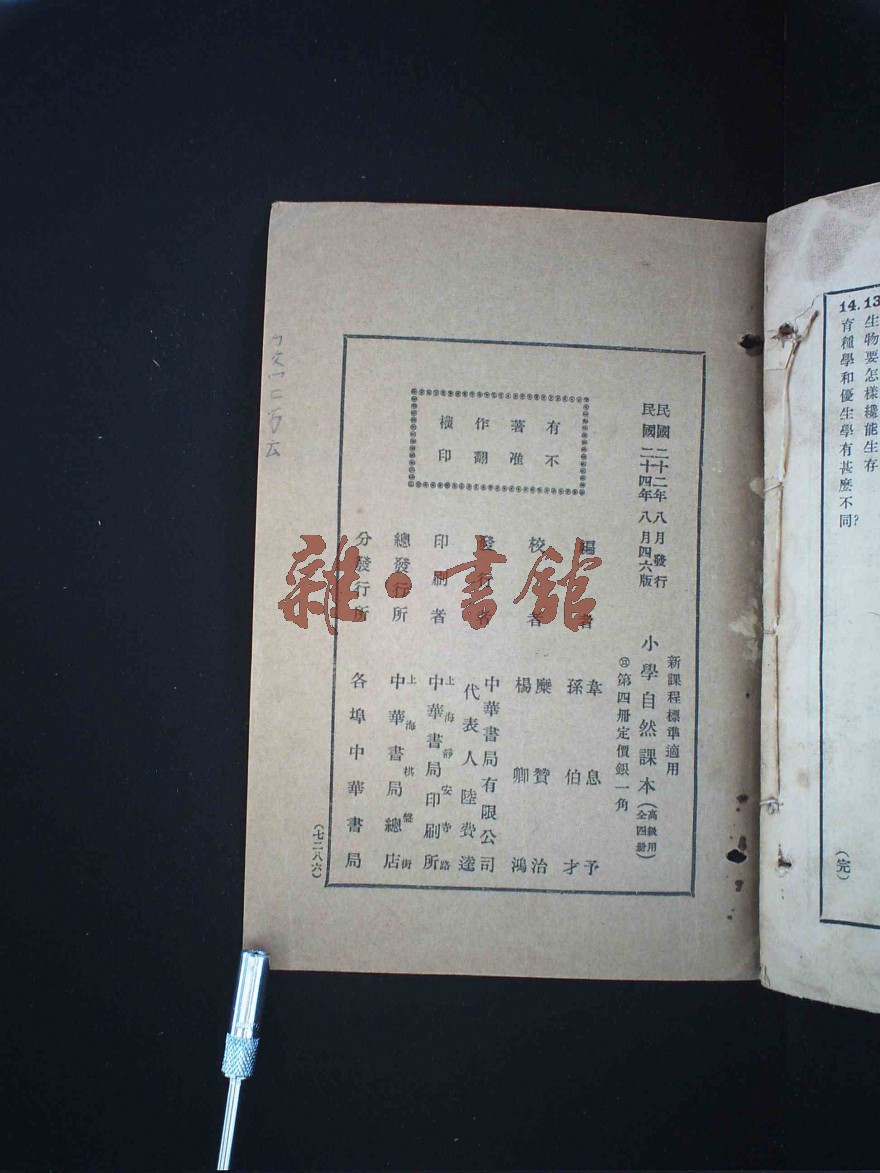 14. 13
生物要怎樣纔能生存
育種學和優生學有甚麽不同?
(完)
民國二十二年八月發行
民國二十四年八月四六版
新課程標準適用
小學自然課本(高級用 全四冊)
第四冊定價銀一角
有著作權
不准翻印
編者 韋息予 孫伯才
校者 糜贊治 楊卿鴻
發行者 中華書局有限公司 代表人 陸費逵
印刷者 上海靜安寺路 中華書局印刷所
總發行所 上海棋盤街 中華書局總店
分發行所 各埠中華書局
(七二八六)
雜·書館